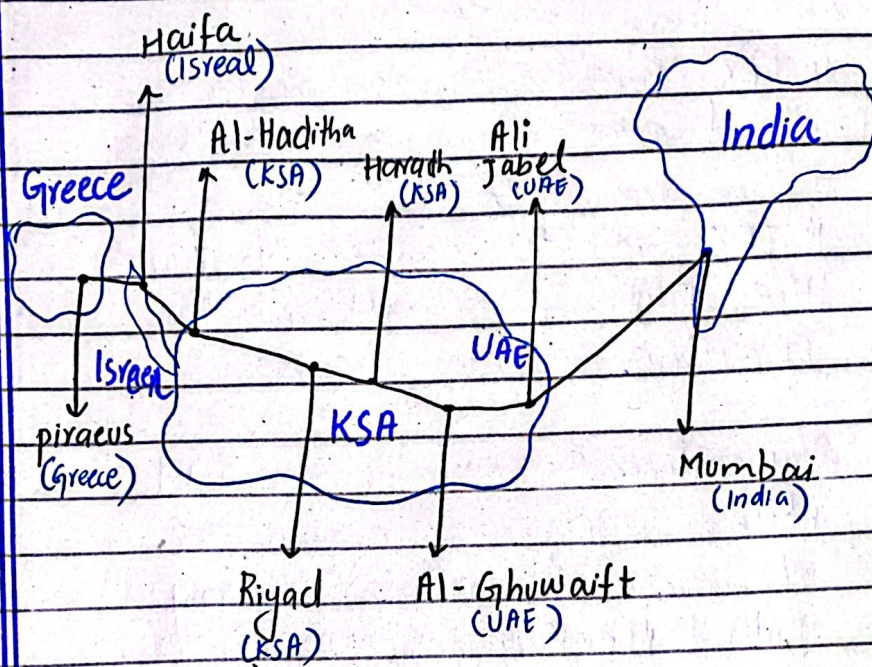 Haifa
(Isreal)
Al-Haditha
(KSA)
Haradh
(KSA)
Ali
Jabel
(UAE)
India
Greece
UAE
Isreal
KSA
piraeus
(Greece)
Mumbai
(India)
Riyad
(KSA)
Al-Ghuwaift
(UAE)